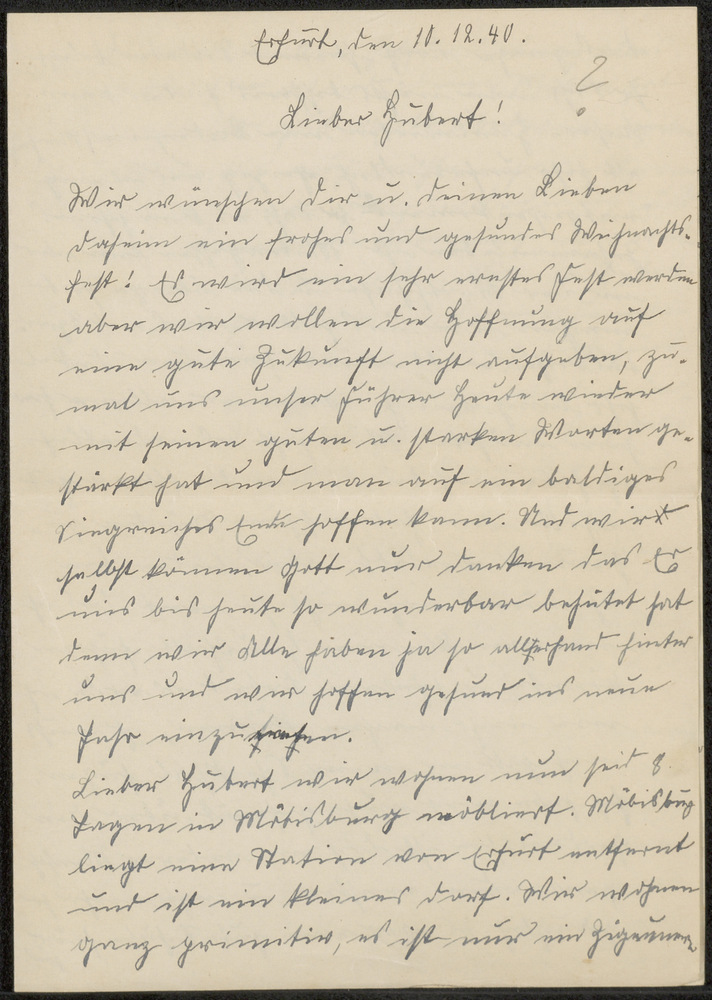 Erfurt, den 10. 12. 40.
?
Lieber Hubert!
Wir wünschen Dir u. deinen Lieben
daheim ein frohes und gesundes Weihnachts-
fest! Es wird ein sehr ernstes Fest werden
aber wir wollen die Hoffnung auf
eine gute Zukunft nicht aufgeben, zu-
mal uns unser Führer heute wieder
mit seinen guten u. starken Worten ge-
stärkt hat und man auf ein baldiges
Siegreiches Ende hoffen kann. Und wir
selbst können Gott nur danken das Er
uns bis heute so wunderbar behütet hat
denn wir Alle haben ja so allerhand hinter
uns und wir hoffen gesund ins neue
Jahr einzuziehen.
Lieber Hubert wir wohnen nun seid 8
Tagen in Möbisburg möbliert. Möbisburg
liegt eine Station von Erfurt entfernt
und ist ein kleines Dorf. Wir wohnen
ganz primitiv, es ist nur ein Zigeuner